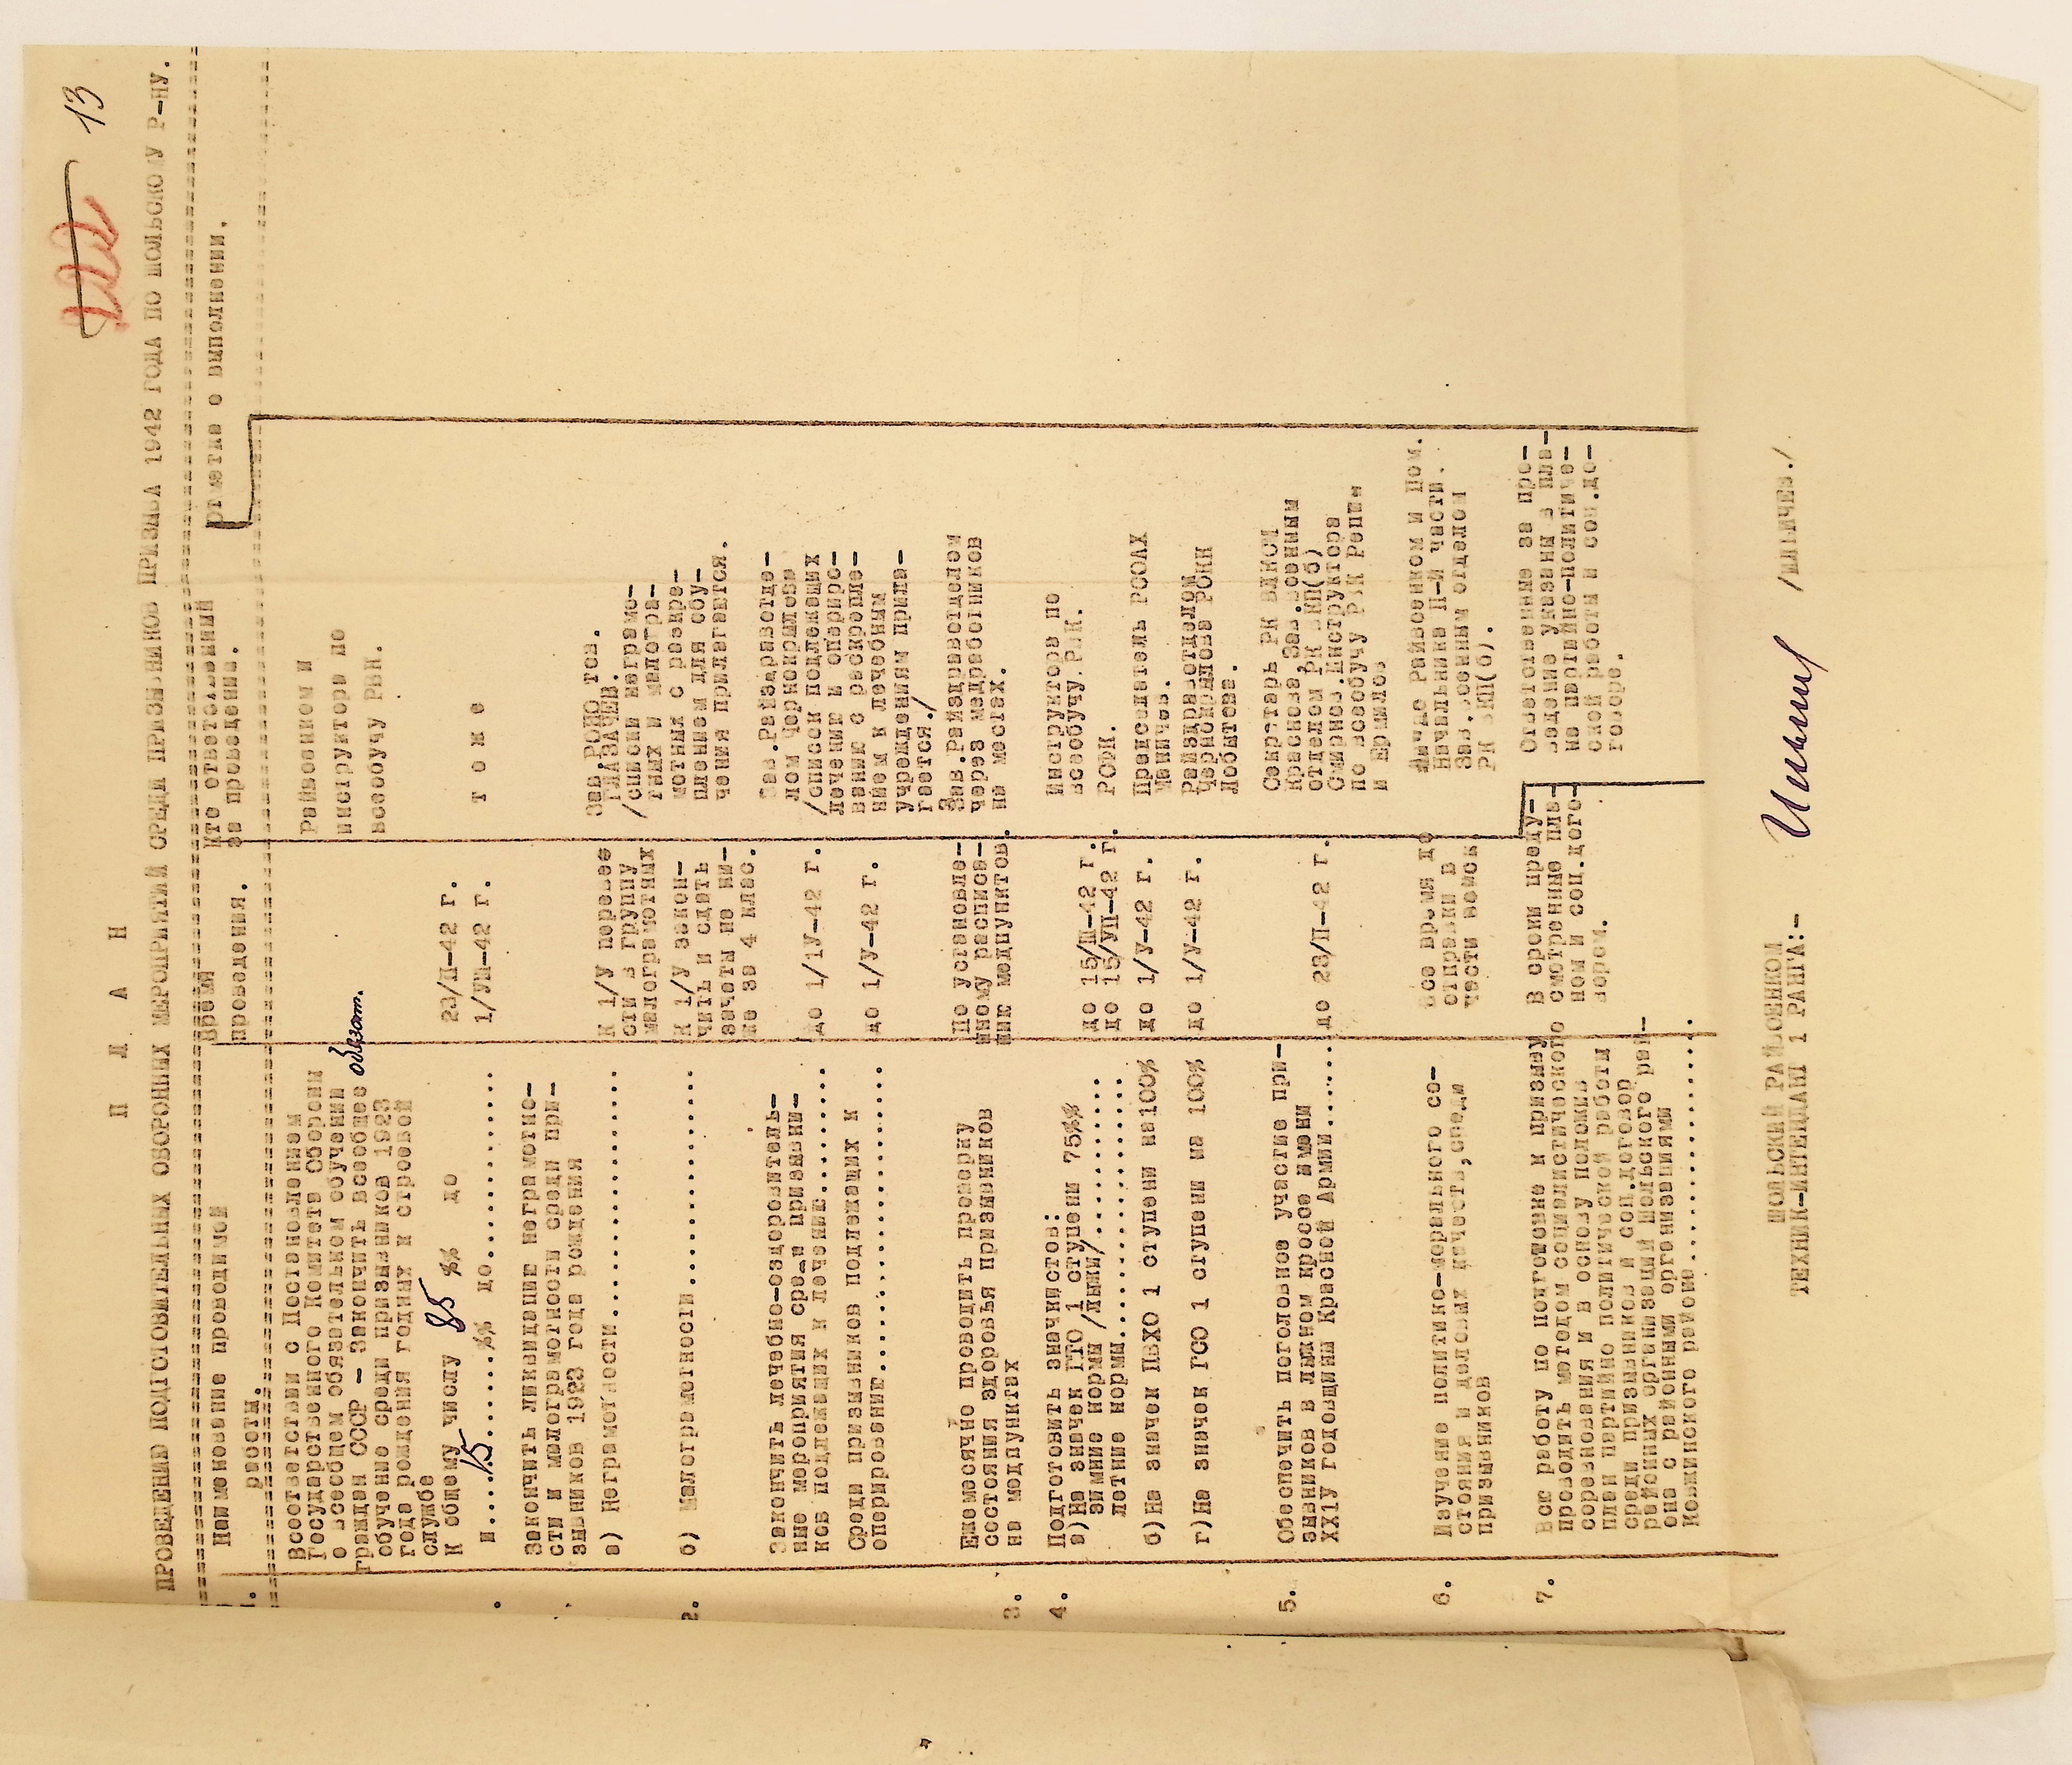 13
П Л А Н
ПРОВЕДЕНИЮ ПОДГОТОВИТЕЛЬНЫХ ОБОРОННЫХ МЕРОПРИЯТИЙ СРЕДИ ПРИЗЫВНИКОВ ПРИЗЫВА 1942 ГОДА ПО ШОЛЬСКОМУ Р-НУ.
Наименование проводимой
работы.
Время
проведения.
Кто ответственный
за проведение.
Отметка о выполнении.
Всоответствии с Постановлением
Государственного Комитета Обороны
о всеобщем обязательном обучении
граждан СССР - Закончить всеобщее обязат.
обучение среди призывников 1923
года рождения годных к строевой
службе
К общему числу 85 %% до
и.....15.......%% до............
23/П-42 г.
1/УШ-42 г.
Райвоенком и
инструктора по
всеобучу РВК.
т о ж е
2.
Закончить ликвидацию неграмотно-
сти и малограмотности среди при-
зывников 1923 года рождения
а) Неграмотности.................
К 1/У переве
сти в группу
малограмотных
б) Малограмотности...............
К 1/У закон-
чить и сдать
зачеты не ни-
же за 4 клас.
Зав.РОНО тов.
ГЛАЗАЧЕВ.
/списки неграмо-
тных и малогра-
мотных с прикре-
плением для обу-
чения прилагается.
Закончить лечебно-оздоровитель-
ные мероприятия среди призывни-
ков подлежащих к лечению..........
Среди призывников подлежащих к
оперированию......................
до 1/1У-42 г.
до 1/У-42 г.
Зав.Райздравотде-
лом Чернокрылова
/список подлежащих
лечению и опериро-
ванию с раскрепле-
нием к лечебным
учреждениям прила-
гается./
3.
Ежемесячно проводить проверку
состояния здоровья призывников
на медпунктах
По установле-
нному расписа-
нию медпунктов.
Зав.Райздравотделом
через медработников
на местах.
4.
Подготовить значкистов:
а)На значек ГТО /1 ступени 75%%
зимние нормы /лыжи/..........
летние нормы.................
до 15/Ш-42 г.
до 15/УП-42 г.
Инструктора по
всеобучу.РВК.
РОФК.
б)На значек ПВХО 1 ступени на100%
до 1/У-42 г.
Председатель РСОАХ
г)На значек ГСО 1 ступени на 100%
до 1/У-42 г.
Райздравотделом
Чернокрылова РОКК
Лобытева.
5.
Обеспечить поголовное участие при-
зывников в лыжном кроссе имени
XX1У годовщины Красной Армии......
до 23/П-42 г.
Секретарь РК ВЛКСМ
Краснова,Зав.военным
отделом РК ВКП(б)
Смирнов.Инструктора
по всеобучу РВК Репин
и Ермилов
6.
Изучение политико-морального со-
стояния и деловых качеств,среди
призывников
Все время до
отправки в
части войск
Райвоенком и пом.
Начальника П-й части.
Зав.военным отделом
РК ВКП(б).
7.
Всю работу по подготовке к призыву
проводить методом социалистического
соревнования и в основу положив
план партийно политической работы
среди призывников и Соц.договор
районных организаций Шольского рай-
она с районными организациями
Ковжинского района.................
В сроки преду-
смотренные пла-
ном и соц.дого-
вором.
Ответственные за про-
ведение указаны в пла-
не партийно-политиче-
ской работы и соц.до-
говоре.
ШОЛЬСКИЙ РАЙВОЕНКОМ
ТЕХНИК-ИНТЕНДАНТ 1 РАНГА:-